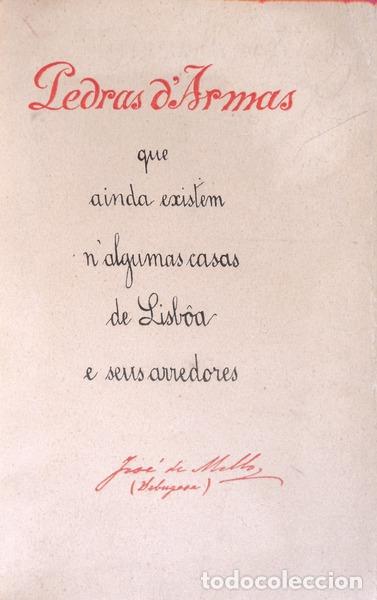 Pedras d'Armas
que
ainda existem
n'algumas casas
de Lisbôa
e seus arredores
José de Mello
(Sabugosa)
todocoleccion
todocoleccion.net